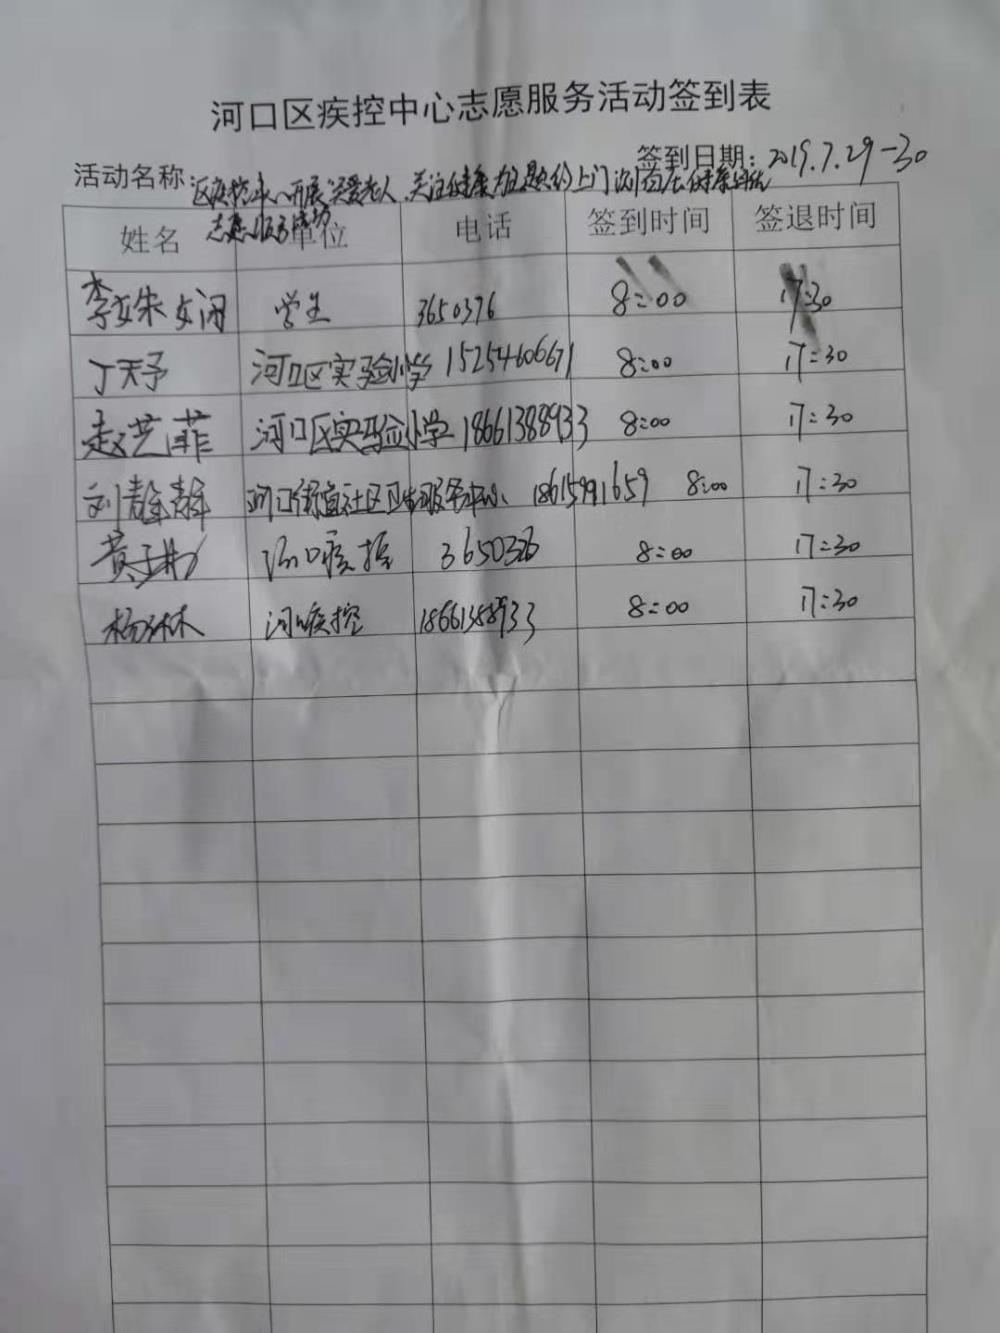 河口区疾控中心志愿服务活动签到表
签到日期：2019.7.29-30
活动名称：区疾控中心开展关爱老人、关注健康为主题的上门
志愿服务活动
姓名 单位 电话 签到时间 签退时间
学生 3650376 8:00 17:30
丁天予 河口区实验小学 15254606671 8:00 17:30
赵艺菲 河口区实验小学 18661388933 8:00 17:30
刘静静 河口街道社区卫生服务中心 18615991659 8:00 17:30
河口疾控 3650326 8:00 17:30
杨林林 河口疾控 18661388933 8:00 17:30